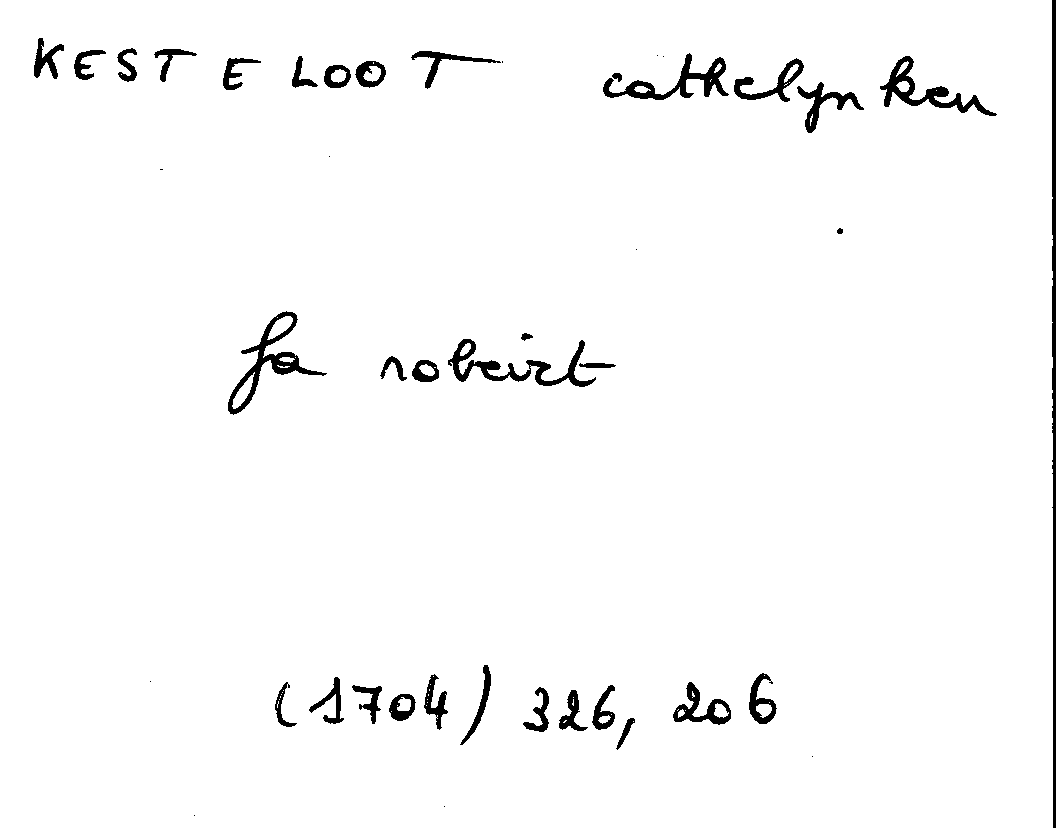 KESTELOOT cathelynken
fa robeirt
(1704) 326, 206